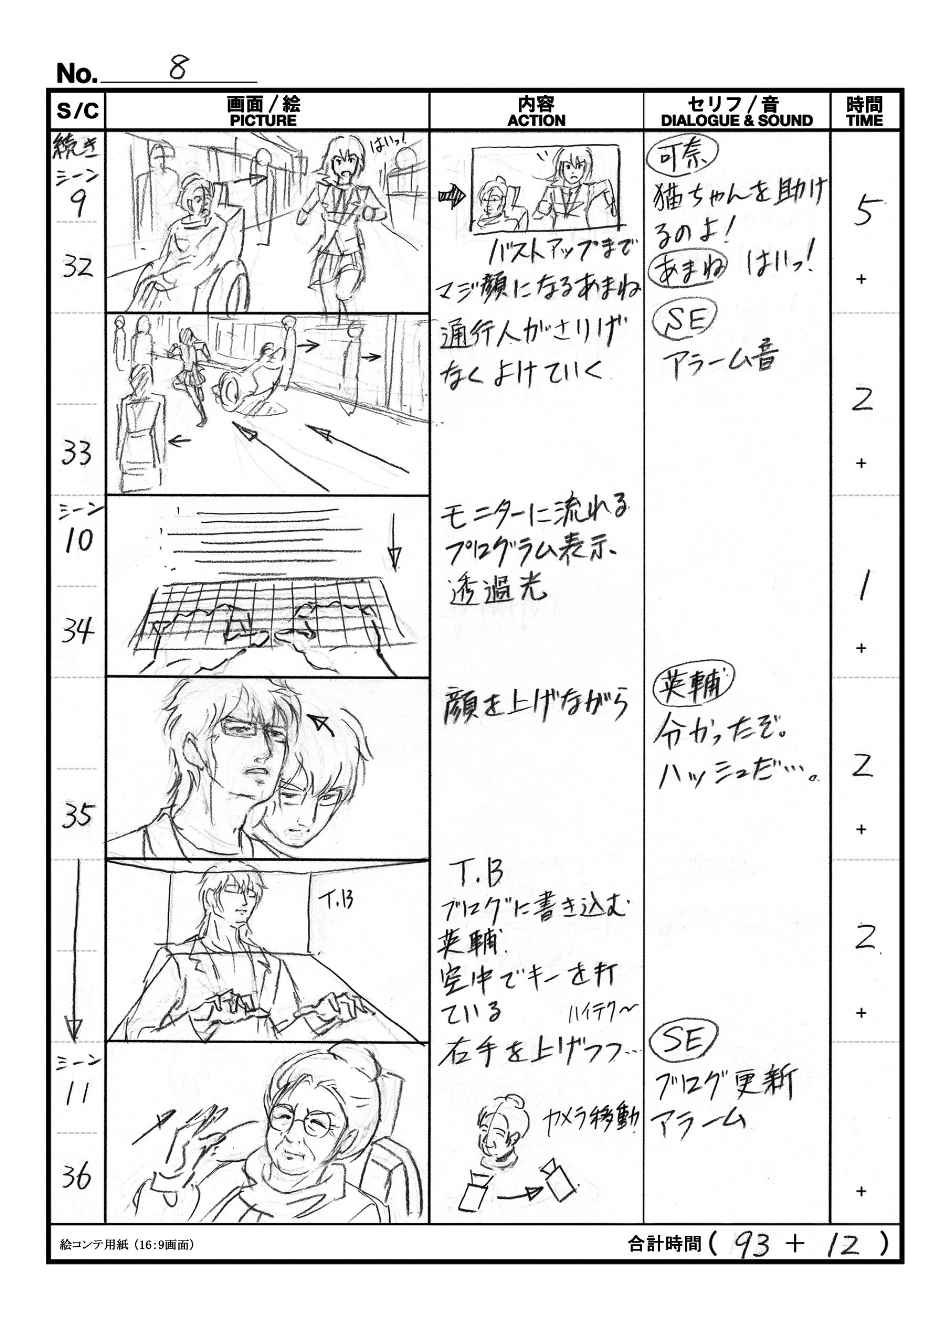 No. 8
S/C
画面/絵
PICTURE
内容
ACTION
セリフ/音
DIALOGUE & SOUND
時間
TIME
続き
シーン
9
32
はいっ!
バストアップまで
マジ顔になるあまね
可奈
猫ちゃんを助け
るのよ!
あまね はいっ!
5
+
33
通行人がさりげ
なくよけていく
SE
アラーム音
2
+
シーン
10
34
モニターに流れる
プログラム表示、
透過光
1
+
35
顔を上げながら
英輔
分かったぞ。
ハッシュだ…。
2
+
T.B
T.B
ブログに書き込む
英輔.
空中でキーを打
ている ハイテク〜
2
+
シーン
11
36
右手を上げつつ…
カメラ移動
SE
ブログ更新
アラーム
+
絵コンテ用紙(16:9画面)
合計時間(93 + 12)